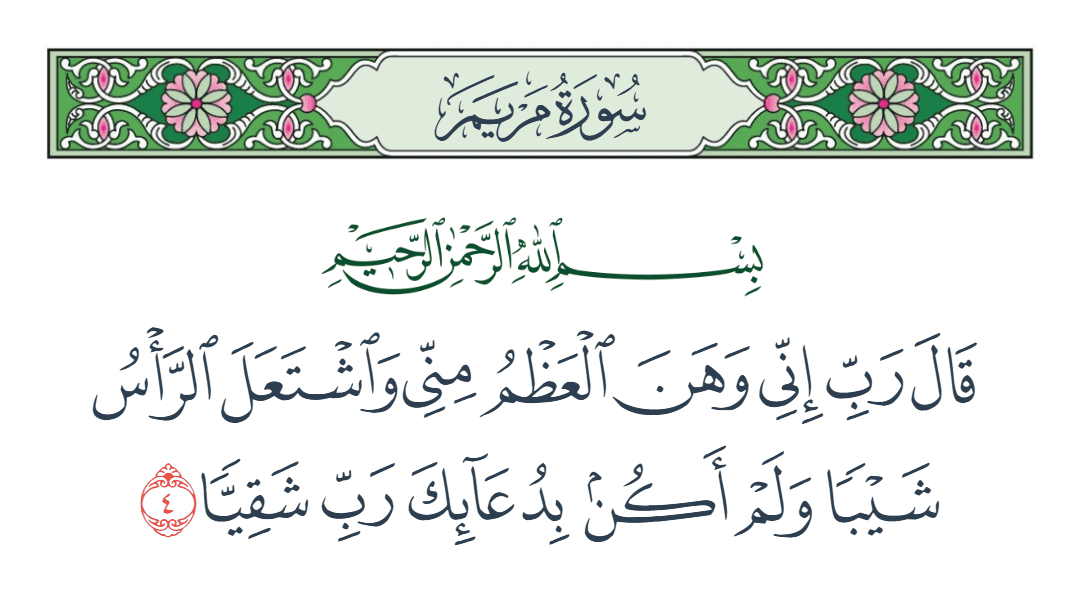 سُورَةُ مَرْيَمَ
بِسْمِ ٱللَّهِ ٱلرَّحْمَٰنِ ٱلرَّحِيمِ
قَالَ رَبِّ إِنِّي وَهَنَ ٱلْعَظْمُ مِنِّي وَٱشْتَعَلَ ٱلرَّأْسُ
شَيْبًا وَلَمْ أَكُنۢ بِدُعَآئِكَ رَبِّ شَقِيًّا ٤